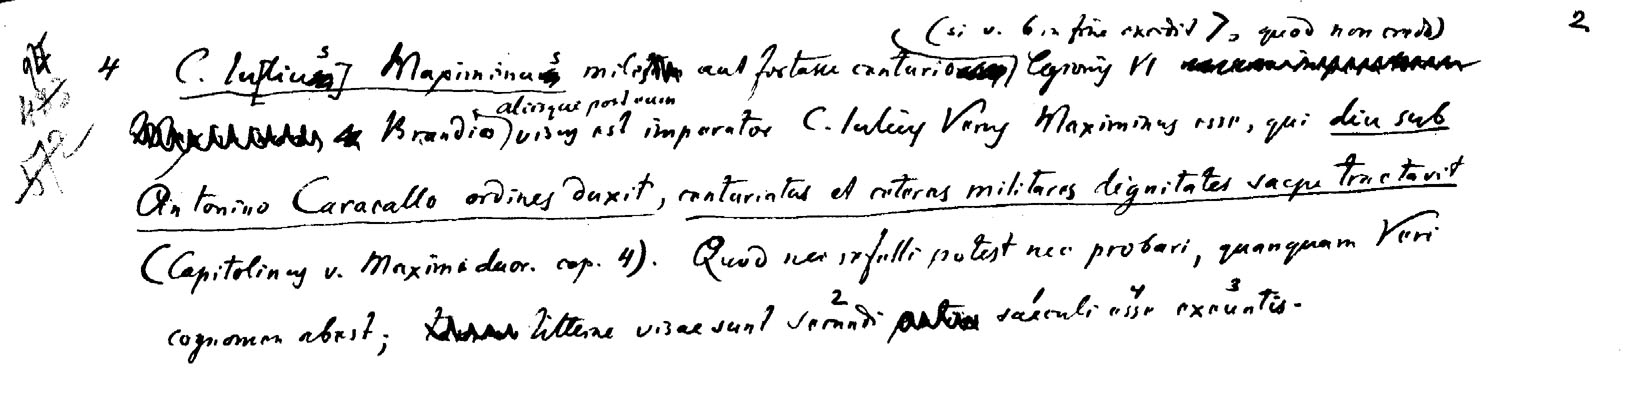 (si v. 6 in fine excidit 7, quod non credo) 2
4 C. Iu[lius] Maximinus miles aut fortasse centurio legionis VI
Brandio aliisque post eum visus est imperator C. Iulius Verus Maximinus esse, qui diu sub
Antonino Caracallo ordines duxit, centuriatus et ceteras militares dignitates saepe tractavit
(Capitolinus v. Maximi duor. cap. 4). Quod nec refelli potest nec probari, quanquam Veri
cognomen abest; litterae visae sunt secundi saeculi esse exeuntis.